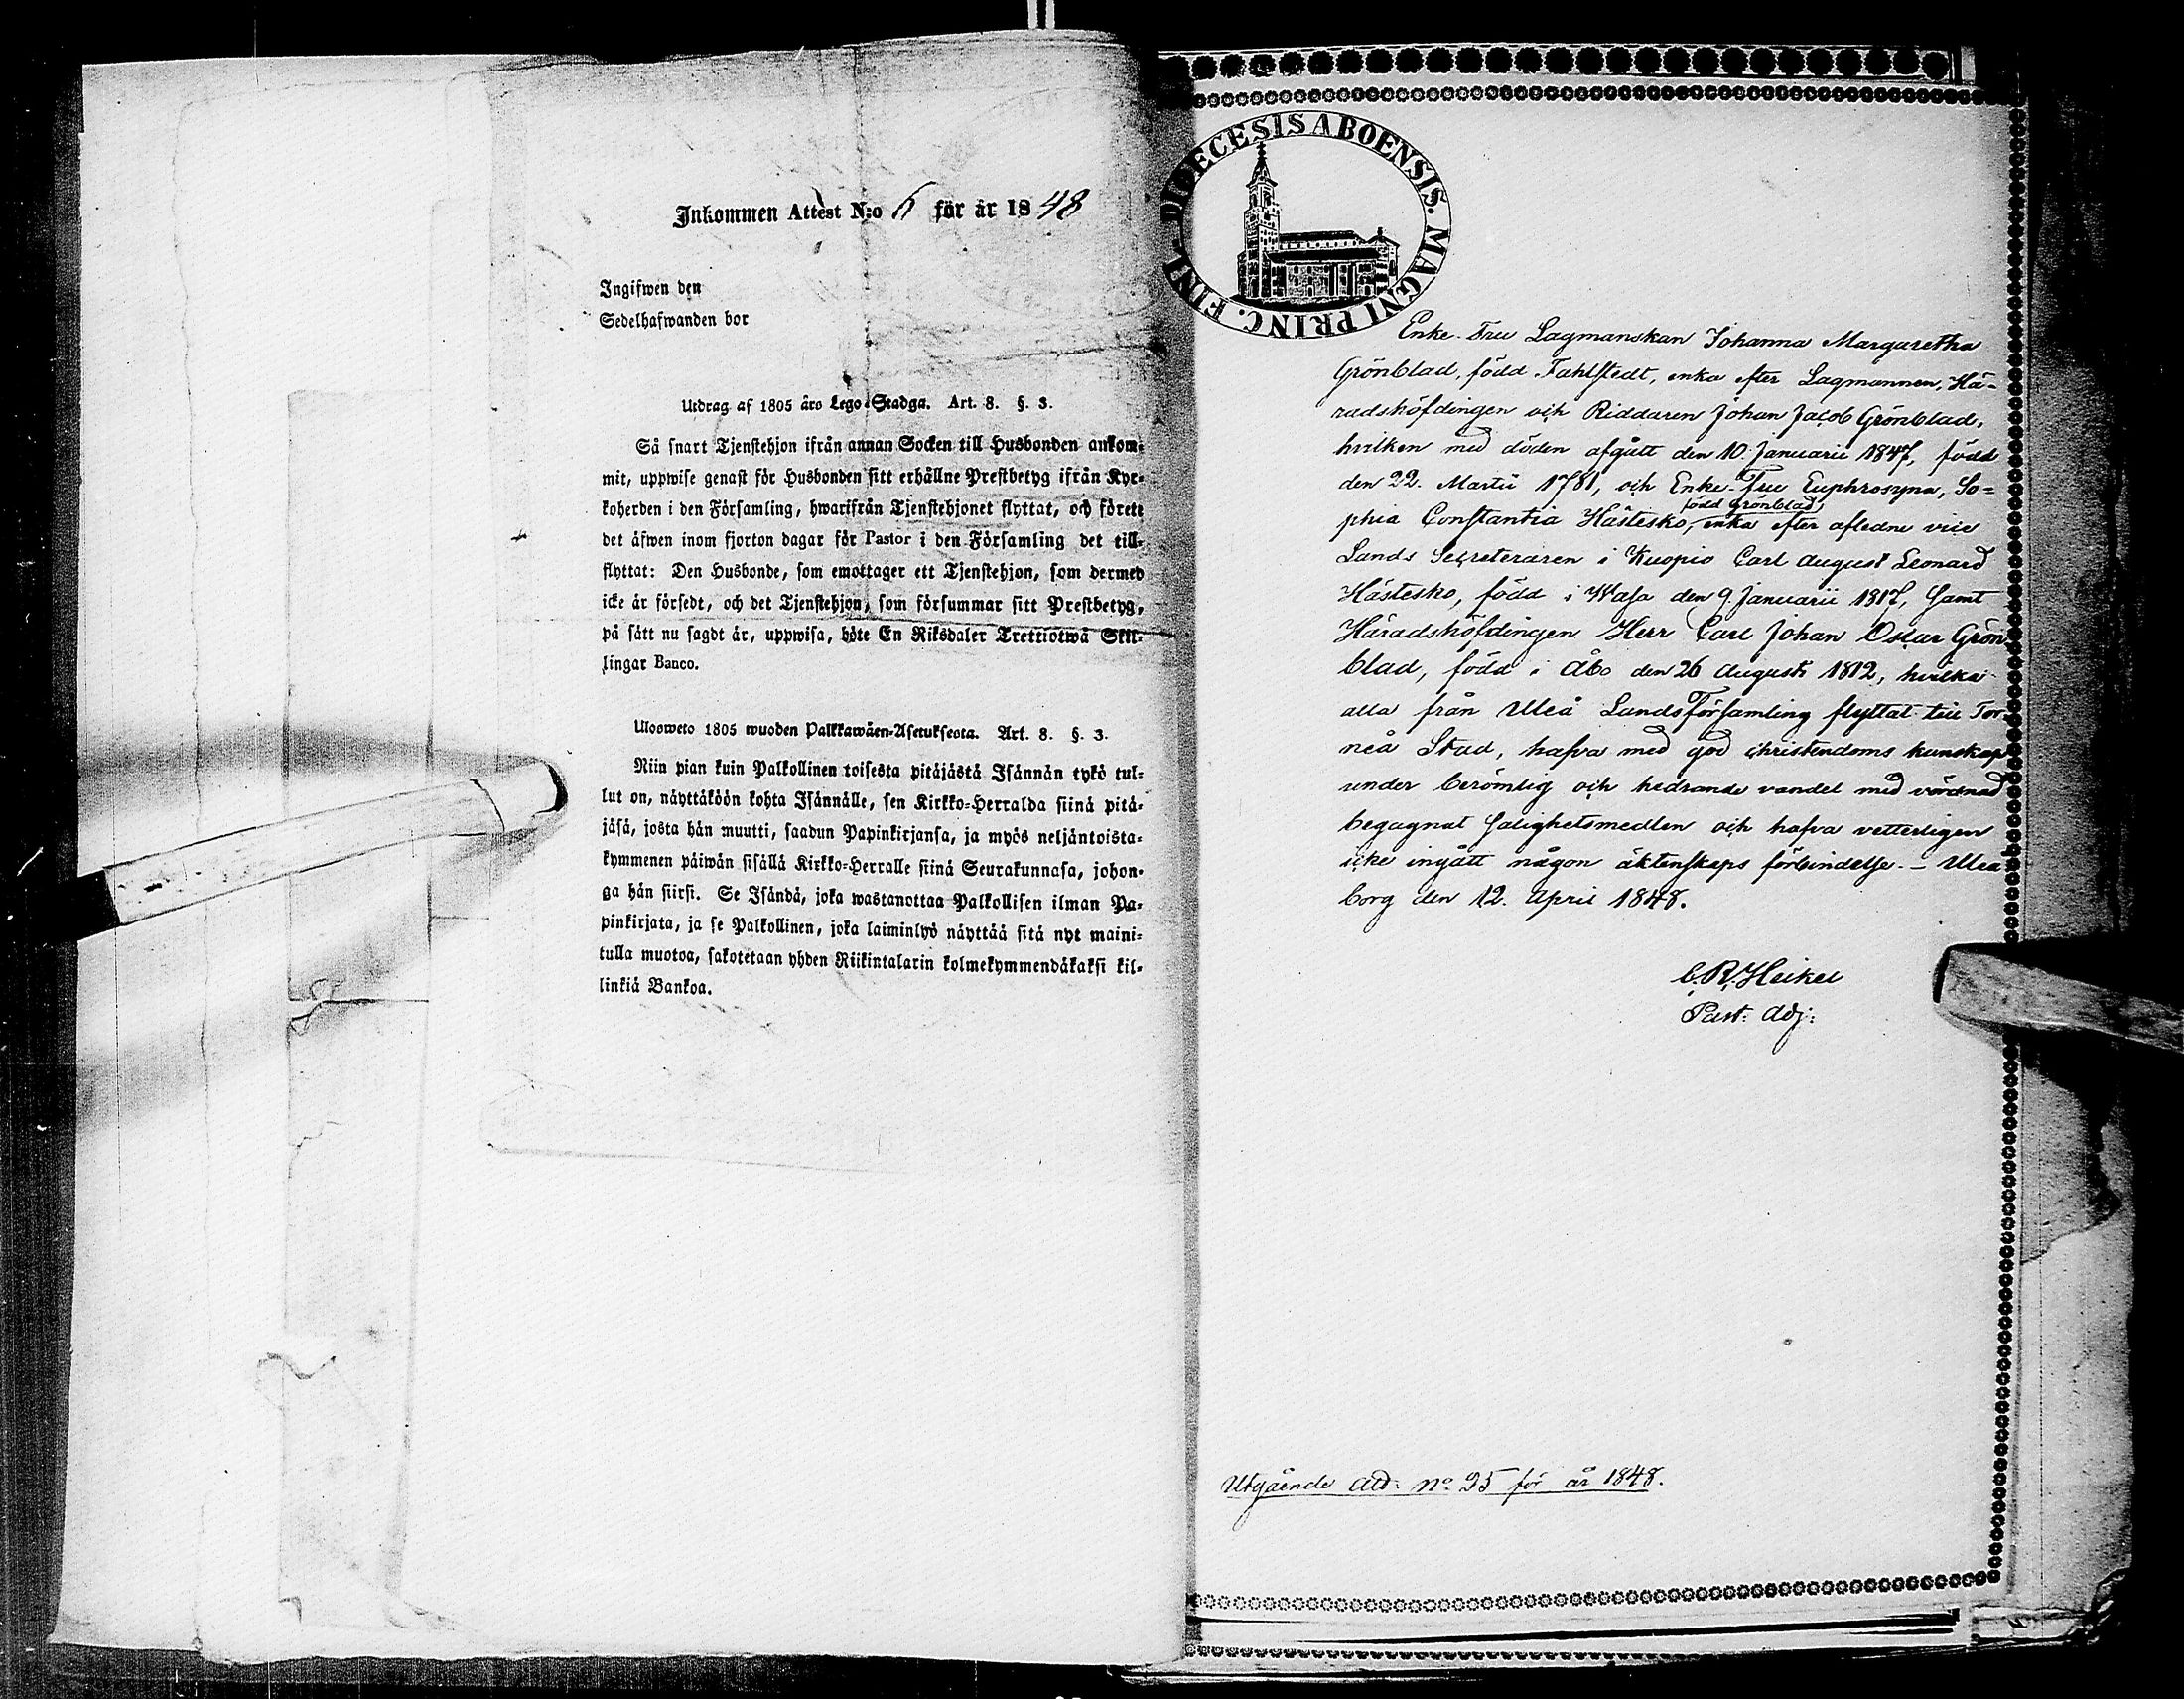 Inkommen Attest N:o 6 för år 1848
Ingifwen den
Sedelhafwanden bor
Utdrag af 1805 års Lego-Stadga. Art. 8. §. 3.
Så snart Tjenstehjon ifrån annan Socken till Husbonden ankom-
mit, uppwise genast för Husbonden sitt erhållne Prestbetyg ifrån Kyr-
koherden i den Församling, hwarifrån Tjenstehjonet flyttat, och förete
det äfwen inom fjorton dagar för Pastor i den Församling det till-
flyttat: Den Husbonde, som emottager ett Tjenstehjon, som dermed
icke är försedt, och det Tjenstehjon, som försummar sitt Prestbetyg,
på sätt nu sagdt är, uppwisa, böte En Riksdaler Trettiotwå Skil-
lingar Banco.
Ulosweto 1805 wuoden Palkkawäen-Asetuksesta. Art. 8. §. 3.
Niin pian kuin Palkollinen toisesta pitäjästä Isännän tykö tul-
lut on, näyttäköön kohta Isännälle, sen Kirkko-Herralda siinä pitä-
jäsä, josta hän muutti, saadun Papinkirjansa, ja myös neljäntoista-
kymmenen päiwän sisällä Kirkko-Herralle siinä Seurakunnasa, johon-
ga hän siirsi. Se Isändä, joka wastanottaa Palkollisen ilman Pa-
pinkirjata, ja se Palkollinen, joka laiminlyö näyttää sitä nyt maini-
tulla muotoa, sakotetaan yhden Riikintalarin kolmekymmendäkaksi kil-
linkiä Bankoa.
DIOECESIS ABOENSIS. MAGNI PRINC. FINL.
Enke-Fru Lagmanskan Johanna Margaretha
Grönblad, född Fahlstedt, enka efter Lagmannen, Hä-
radshöfdingen och Riddaren Johan Jacob Grönblad,
hvilken med döden afgått den 10. Januarii 1847, född
den 22. Martii 1781, och Enke-Fru Euphrosyna, So-
född Grönblad,
phia Constantia Hästesko, enka efter afledne vice
Lands Secreteraren i Kuopio Carl August Leonard
Hästesko, född i Wasa den 9. Januarii 1817, samt
Häradshöfdingen Herr Carl Johan Oscar Grön-
blad, född i Åbo den 26 Augusti 1812, hvilka
alla från Uleå Lands Församling flyttat till Tor-
neå Stad, hafva med god christendoms kunskap
under berömlig och hedrande vandel med vördnad
begagnat salighetsmedlen och hafva vetterligen
icke ingått någon äktenskaps förbindelse. - Uleå
borg den 12. April 1848.
C. R. Heikel
Past: Adj:
Utgående Att: No 25 för år 1848.